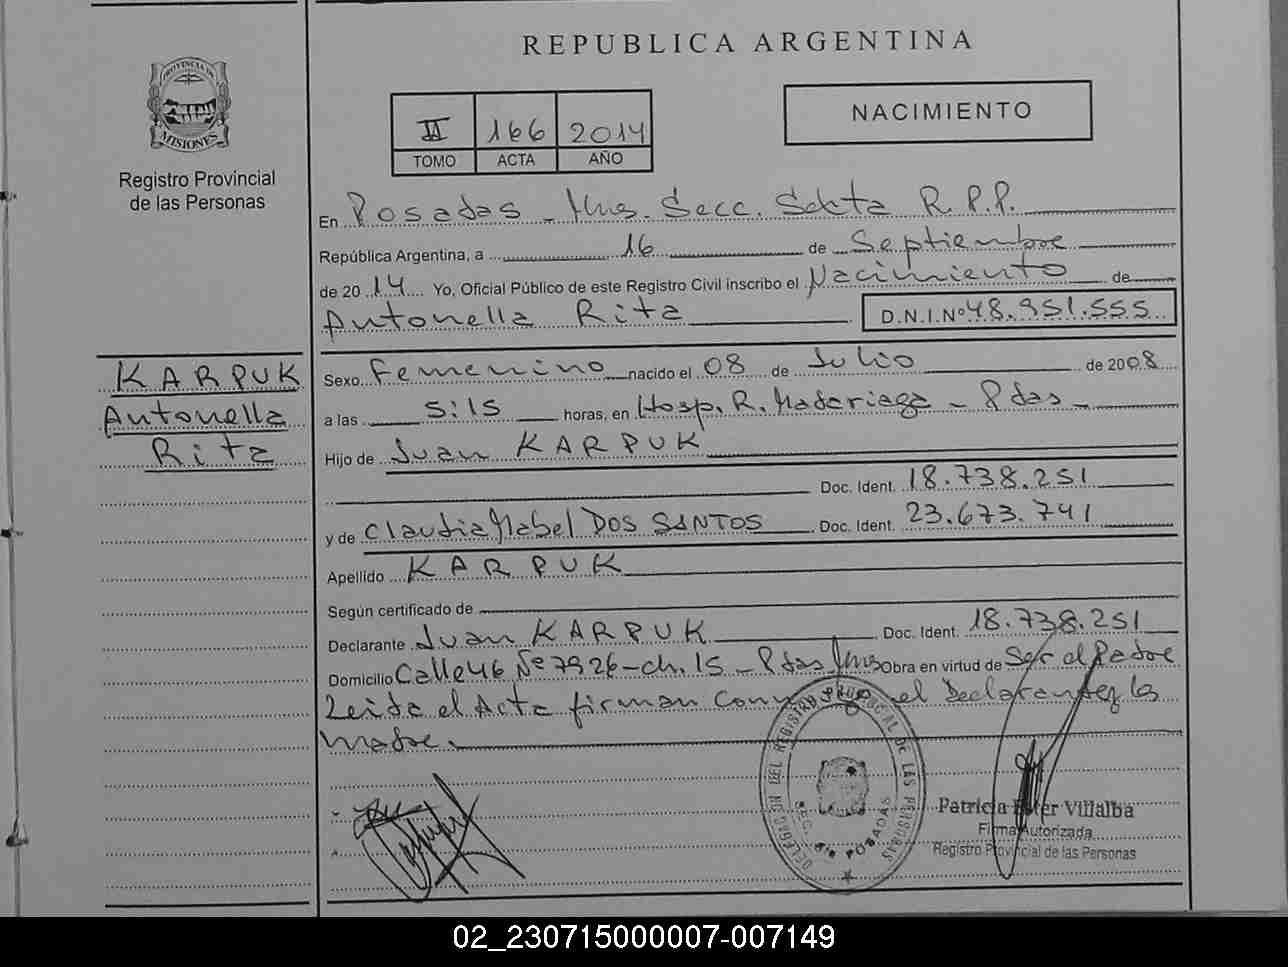 REPUBLICA ARGENTINA
PROVINCIA DE
MISIONES
Registro Provincial
de las Personas
II 166 2014
TOMO ACTA AÑO
NACIMIENTO
En Posadas - Mns. Secc. Sexta R.P.P.
República Argentina, a 16 de Septiembre
de 2014 Yo, Oficial Público de este Registro Civil inscribo el Nacimiento de
Antonella Rita D.N.I.Nº 48.951.555
KARPUK
Antonella
Rita
Sexo Femenino nacido el 08 de Julio de 2008
a las 5:15 horas, en Hosp. R. Madariaga - Pdas -
Hijo de Juan KARPUK
Doc. Ident. 18.738.251
y de Claudia Mabel DOS SANTOS Doc. Ident. 23.673.741
Apellido KARPUK
Según certificado de
Declarante Juan KARPUK Doc. Ident. 18.738.251
Domicilio Calle 46 Nº 7926 - ch. 15 - Pdas Mns Obra en virtud de Ser el Padre
Leida el Acta firman conmigo el Declarante y la
madre.
DELEGACION DEL REGISTRO PROVINCIAL DE LAS PERSONAS
SEC. 6ta POSADAS
Patricia Ester Villalba
Firma Autorizada
Registro Provincial de las Personas
02_230715000007-007149